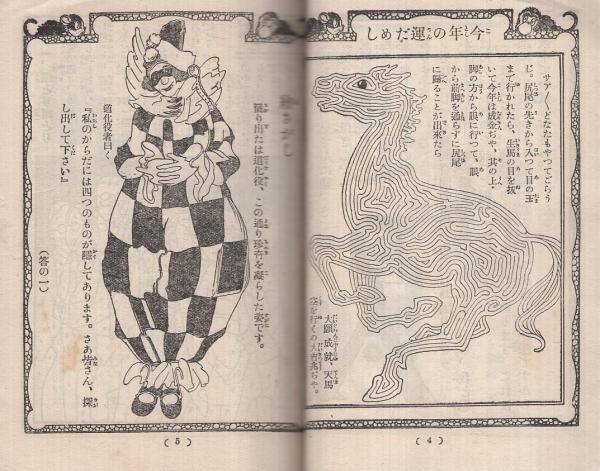 今年の運だめし
サア〱どなたもやつてごらう
じ。尻尾の先きから入つて目の玉
まで行かれたら、生馬の目を抜
いて今年は成金ぢや、其の上、
脚の方から眼に行つて、眼
から前脚を通らずに尻尾
に歸ることが出來たら
大願成就、天馬
空を行くの大吉兆ぢや。
(4)
繪さがし
踊り出たは道化役、この通り珍奇を凝らした姿です。
道化役者曰く
『私のからだには四つのものが隱してあります。さあ皆さん、探
し出して下さい』
(答の一)
(5)